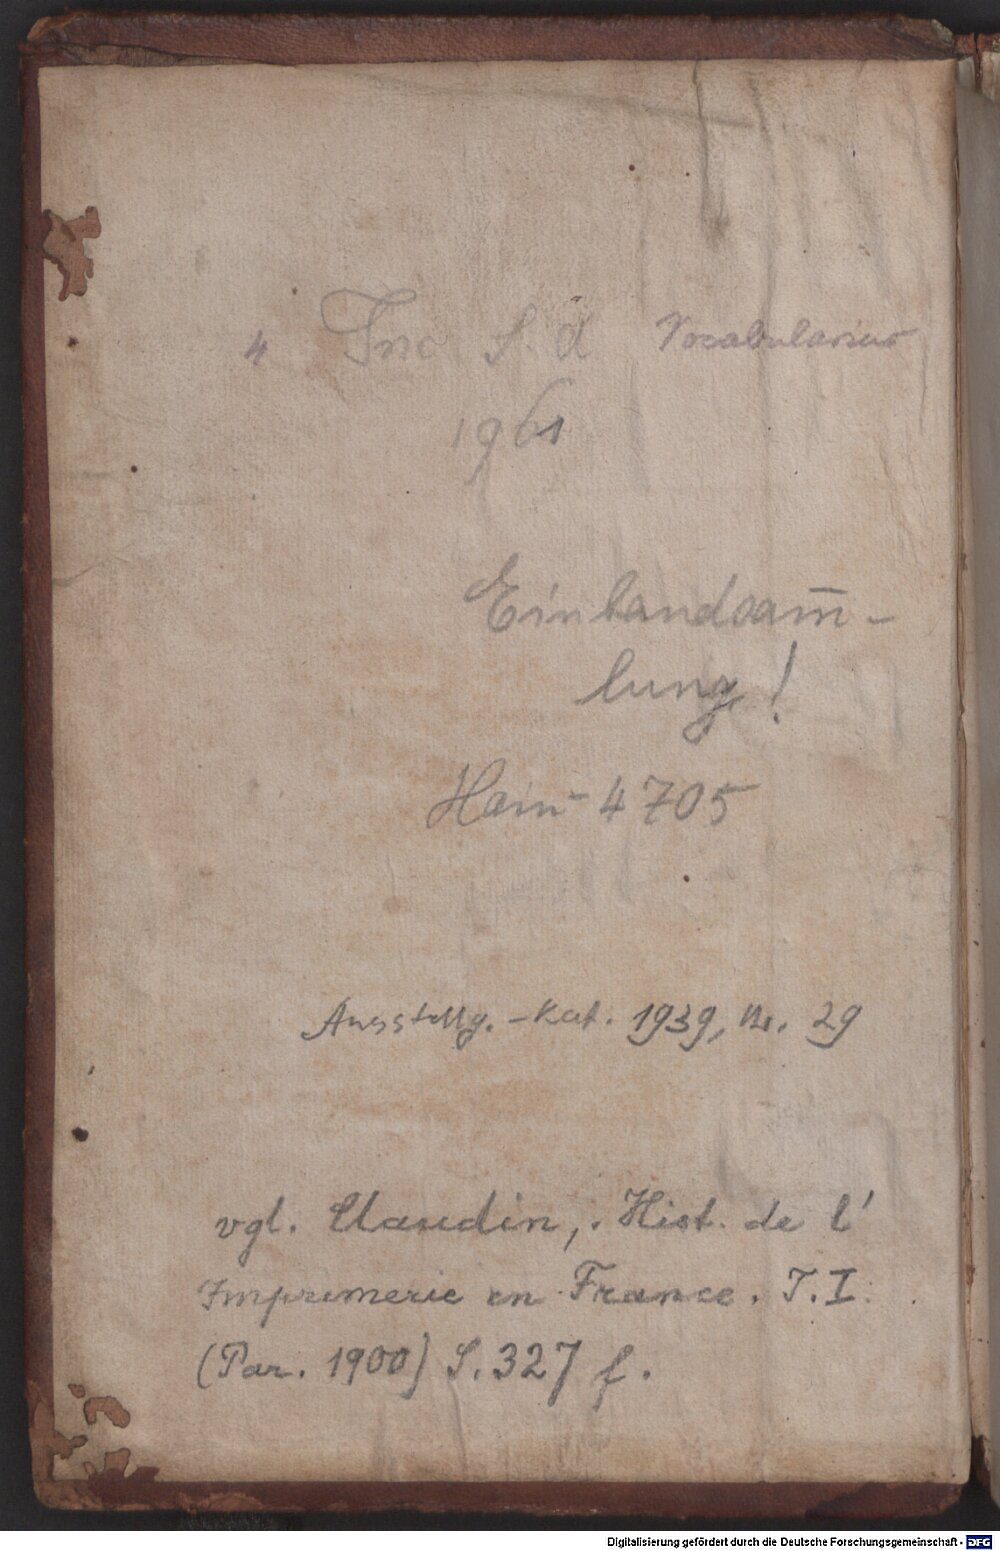 4 Inc s. a Vocabularius
1961
Einbandsam̄-
lung!
Hain 4705
Ausstellg. -Kat. 1939, Nr. 29
vgl. Claudin, Hist. de l'
Imprimerie en France. T. I.
(Par. 1900) S. 327 f.
Digitalisierung gefördert durch die Deutsche Forschungsgemeinschaft - DFG